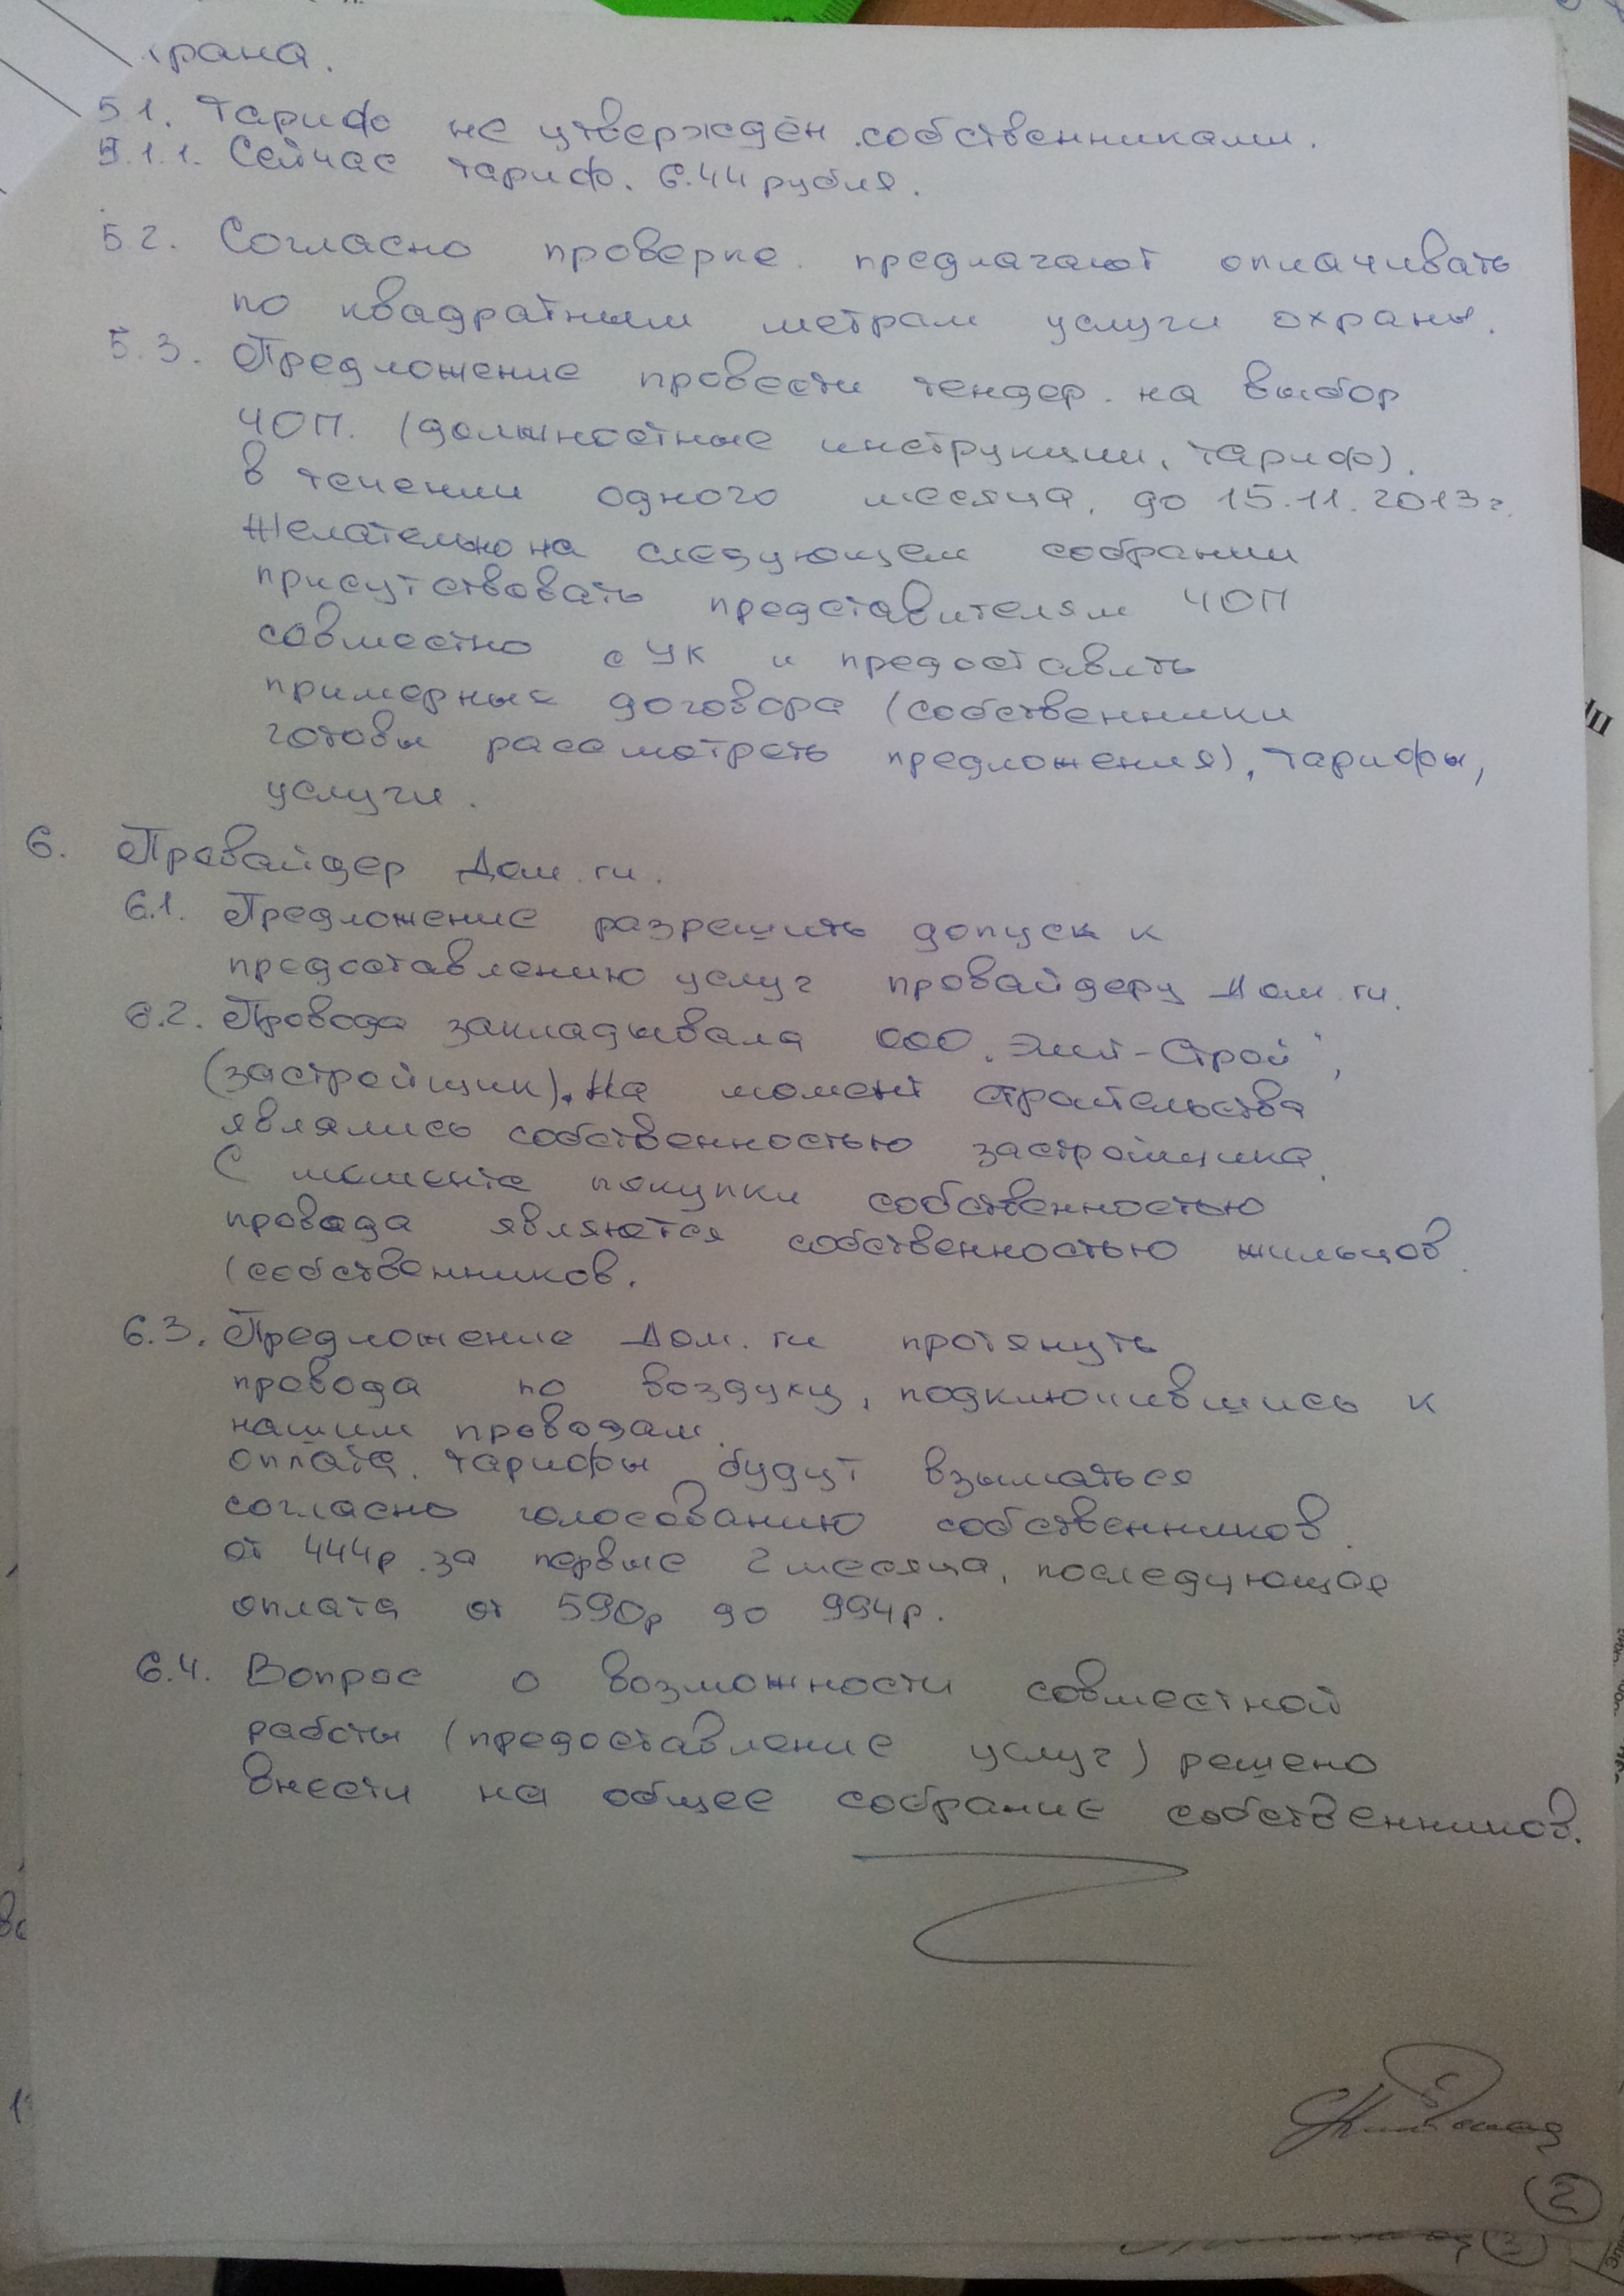 храна.
5.1. Тариф не утверждён собственниками.
5.1.1. Сейчас тариф. 6.44 рубля.
5.2. Согласно проверке предлагают оплачивать
по квадратным метрам услуги охраны.
5.3. Предложение провести тендер на выбор
ЧОП. (должностные инструкции, тариф).
в течении одного месяца, до 15.11.2013г.
Желательно на следующем собрании
присутствовать представителям ЧОП
совместно с УК и предоставить
примерные договора (собственники
готовы рассмотреть предложения), тарифы,
услуги.
6. Провайдер Дом.ru.
6.1. Предложение разрешить допуск к
предоставлению услуг провайдеру Дом.ru.
6.2. Провода закладывала ООО "Элит-Строй",
(застройщик). На момент строительства
являлись собственностью застройщика.
С момента покупки собственностью
провода являются собственностью жильцов
(собственников.
6.3. Предложение Дом.ru протянуть
провода по воздуху, подключившись к
нашим проводам.
оплата, тарифы будут взыматься
согласно голосованию собственников.
от 444р за первые 2 месяца, последующая
оплата от 590р до 994р.
6.4. Вопрос о возможности совместной
работы (предоставление услуг) решено
внести на общее собрание собственников.
2
3